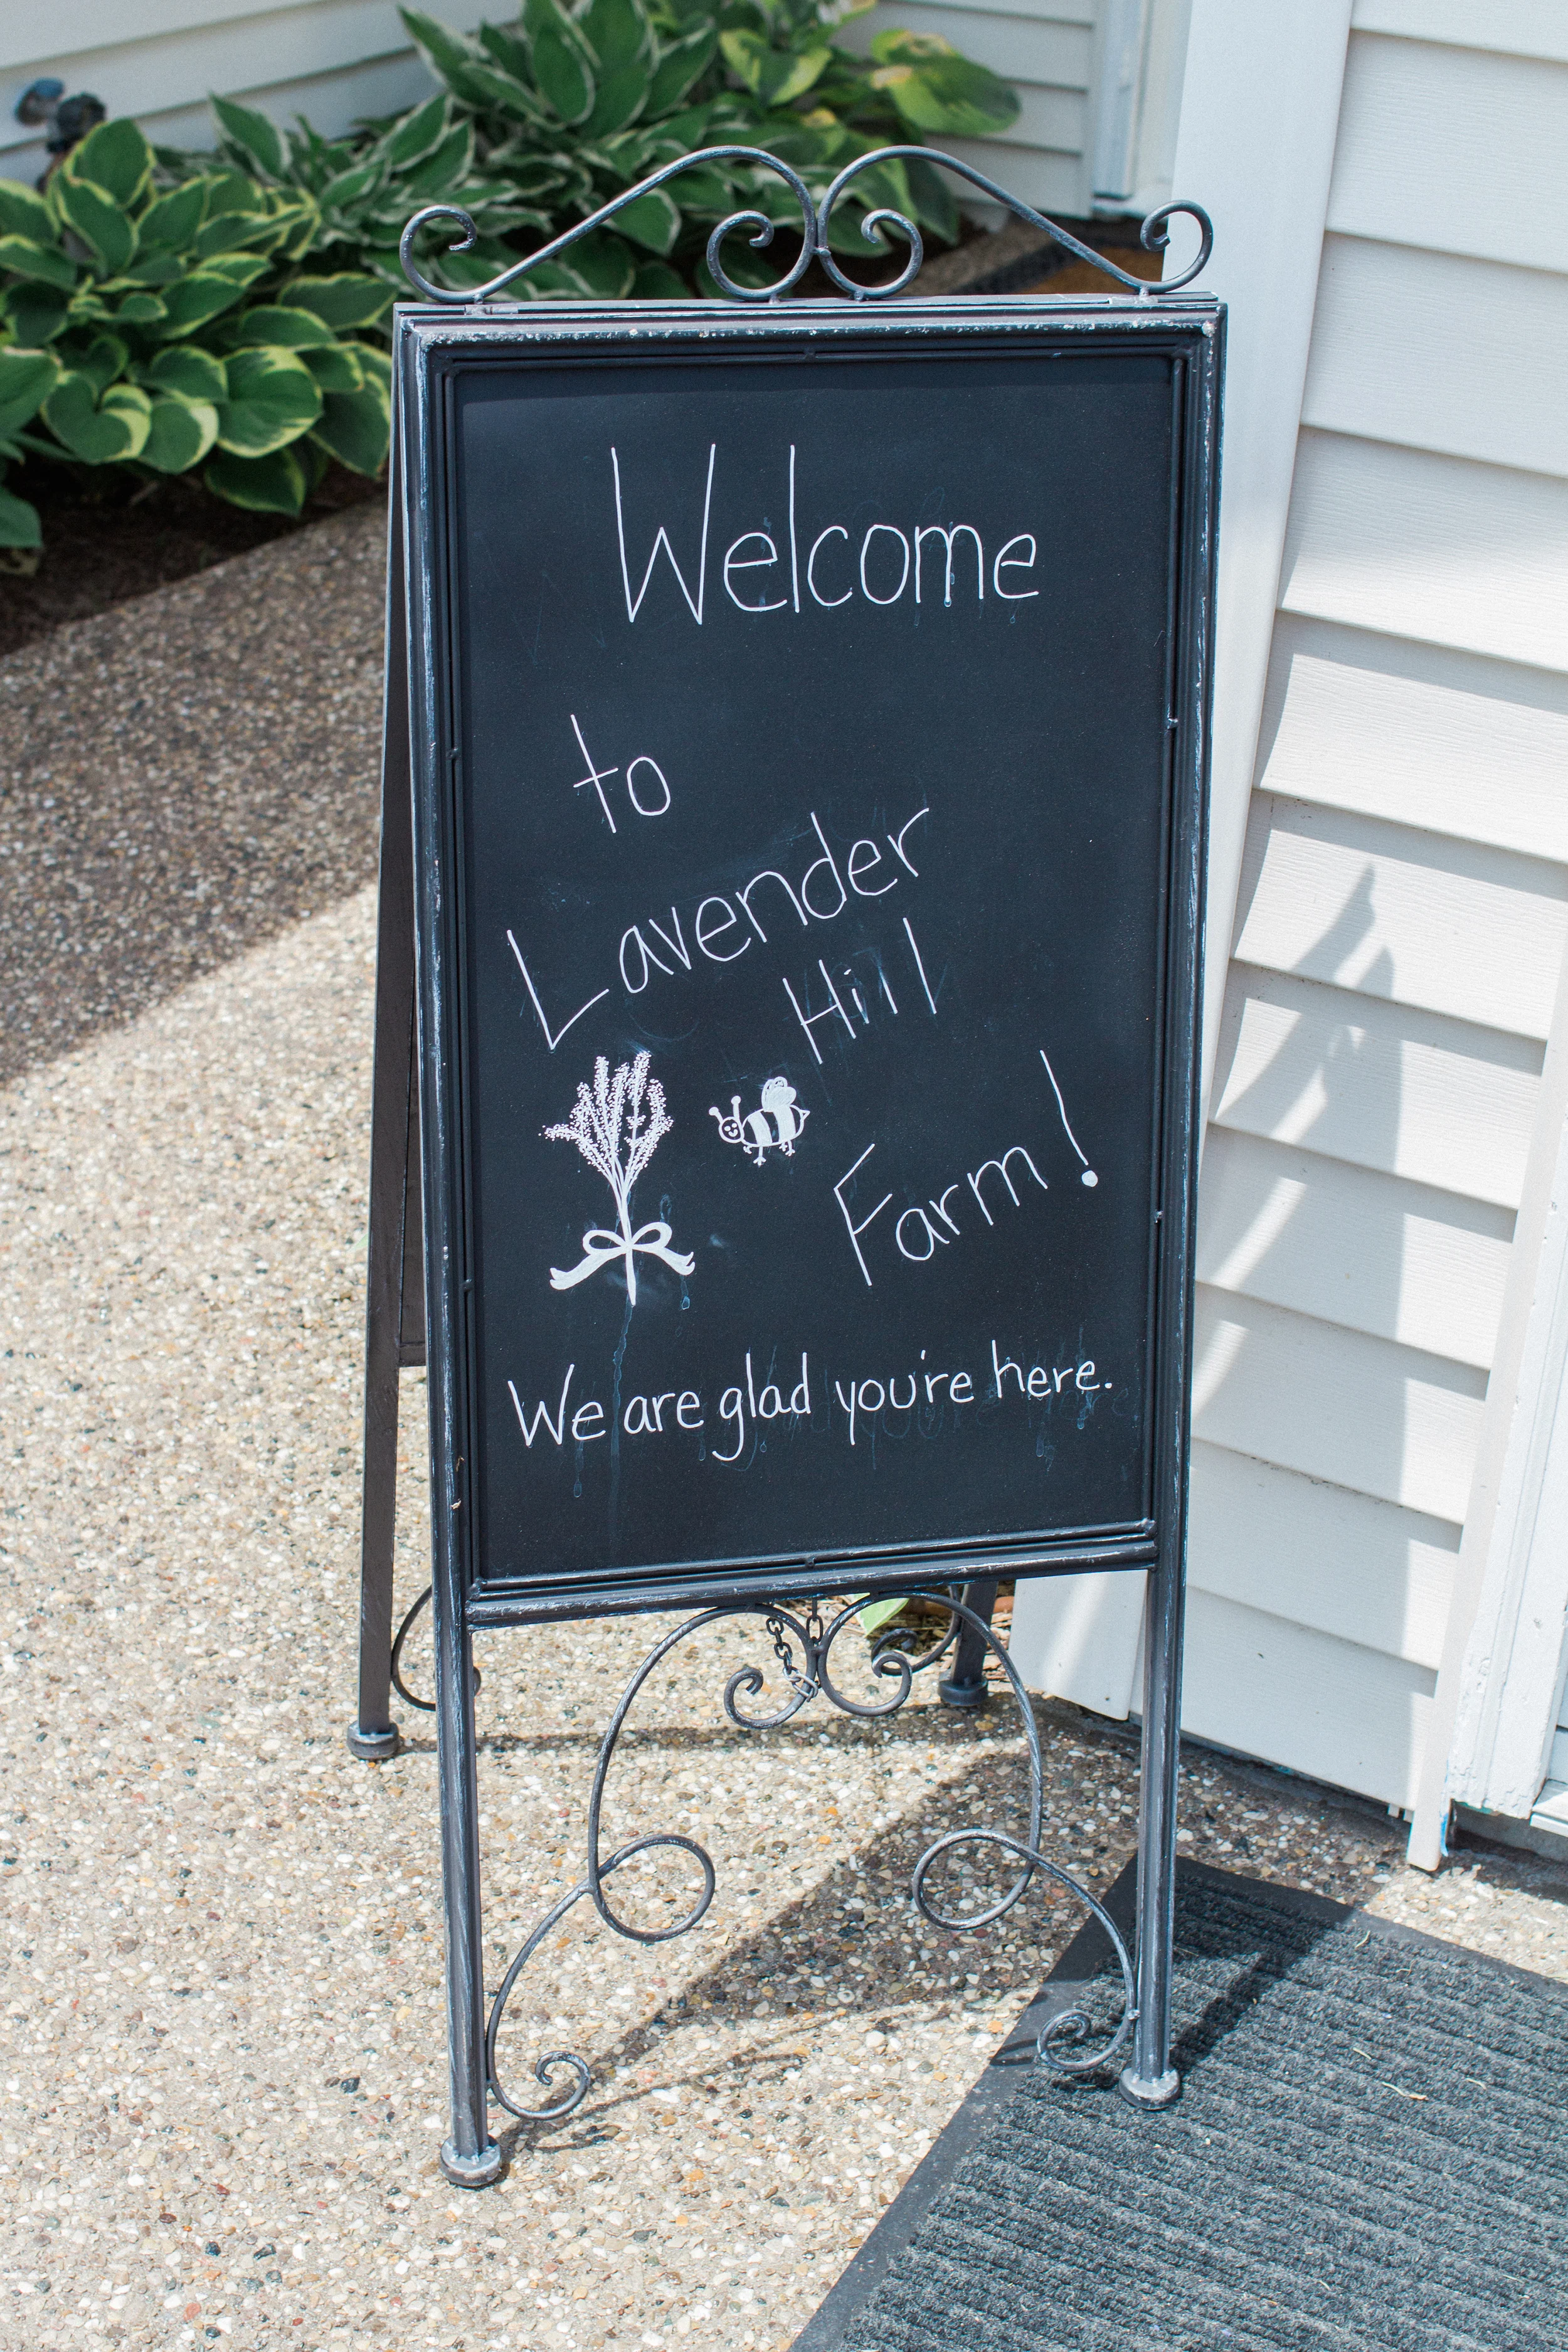 Welcome
to
Lavender
Hill
Farm!
We are glad you're here.